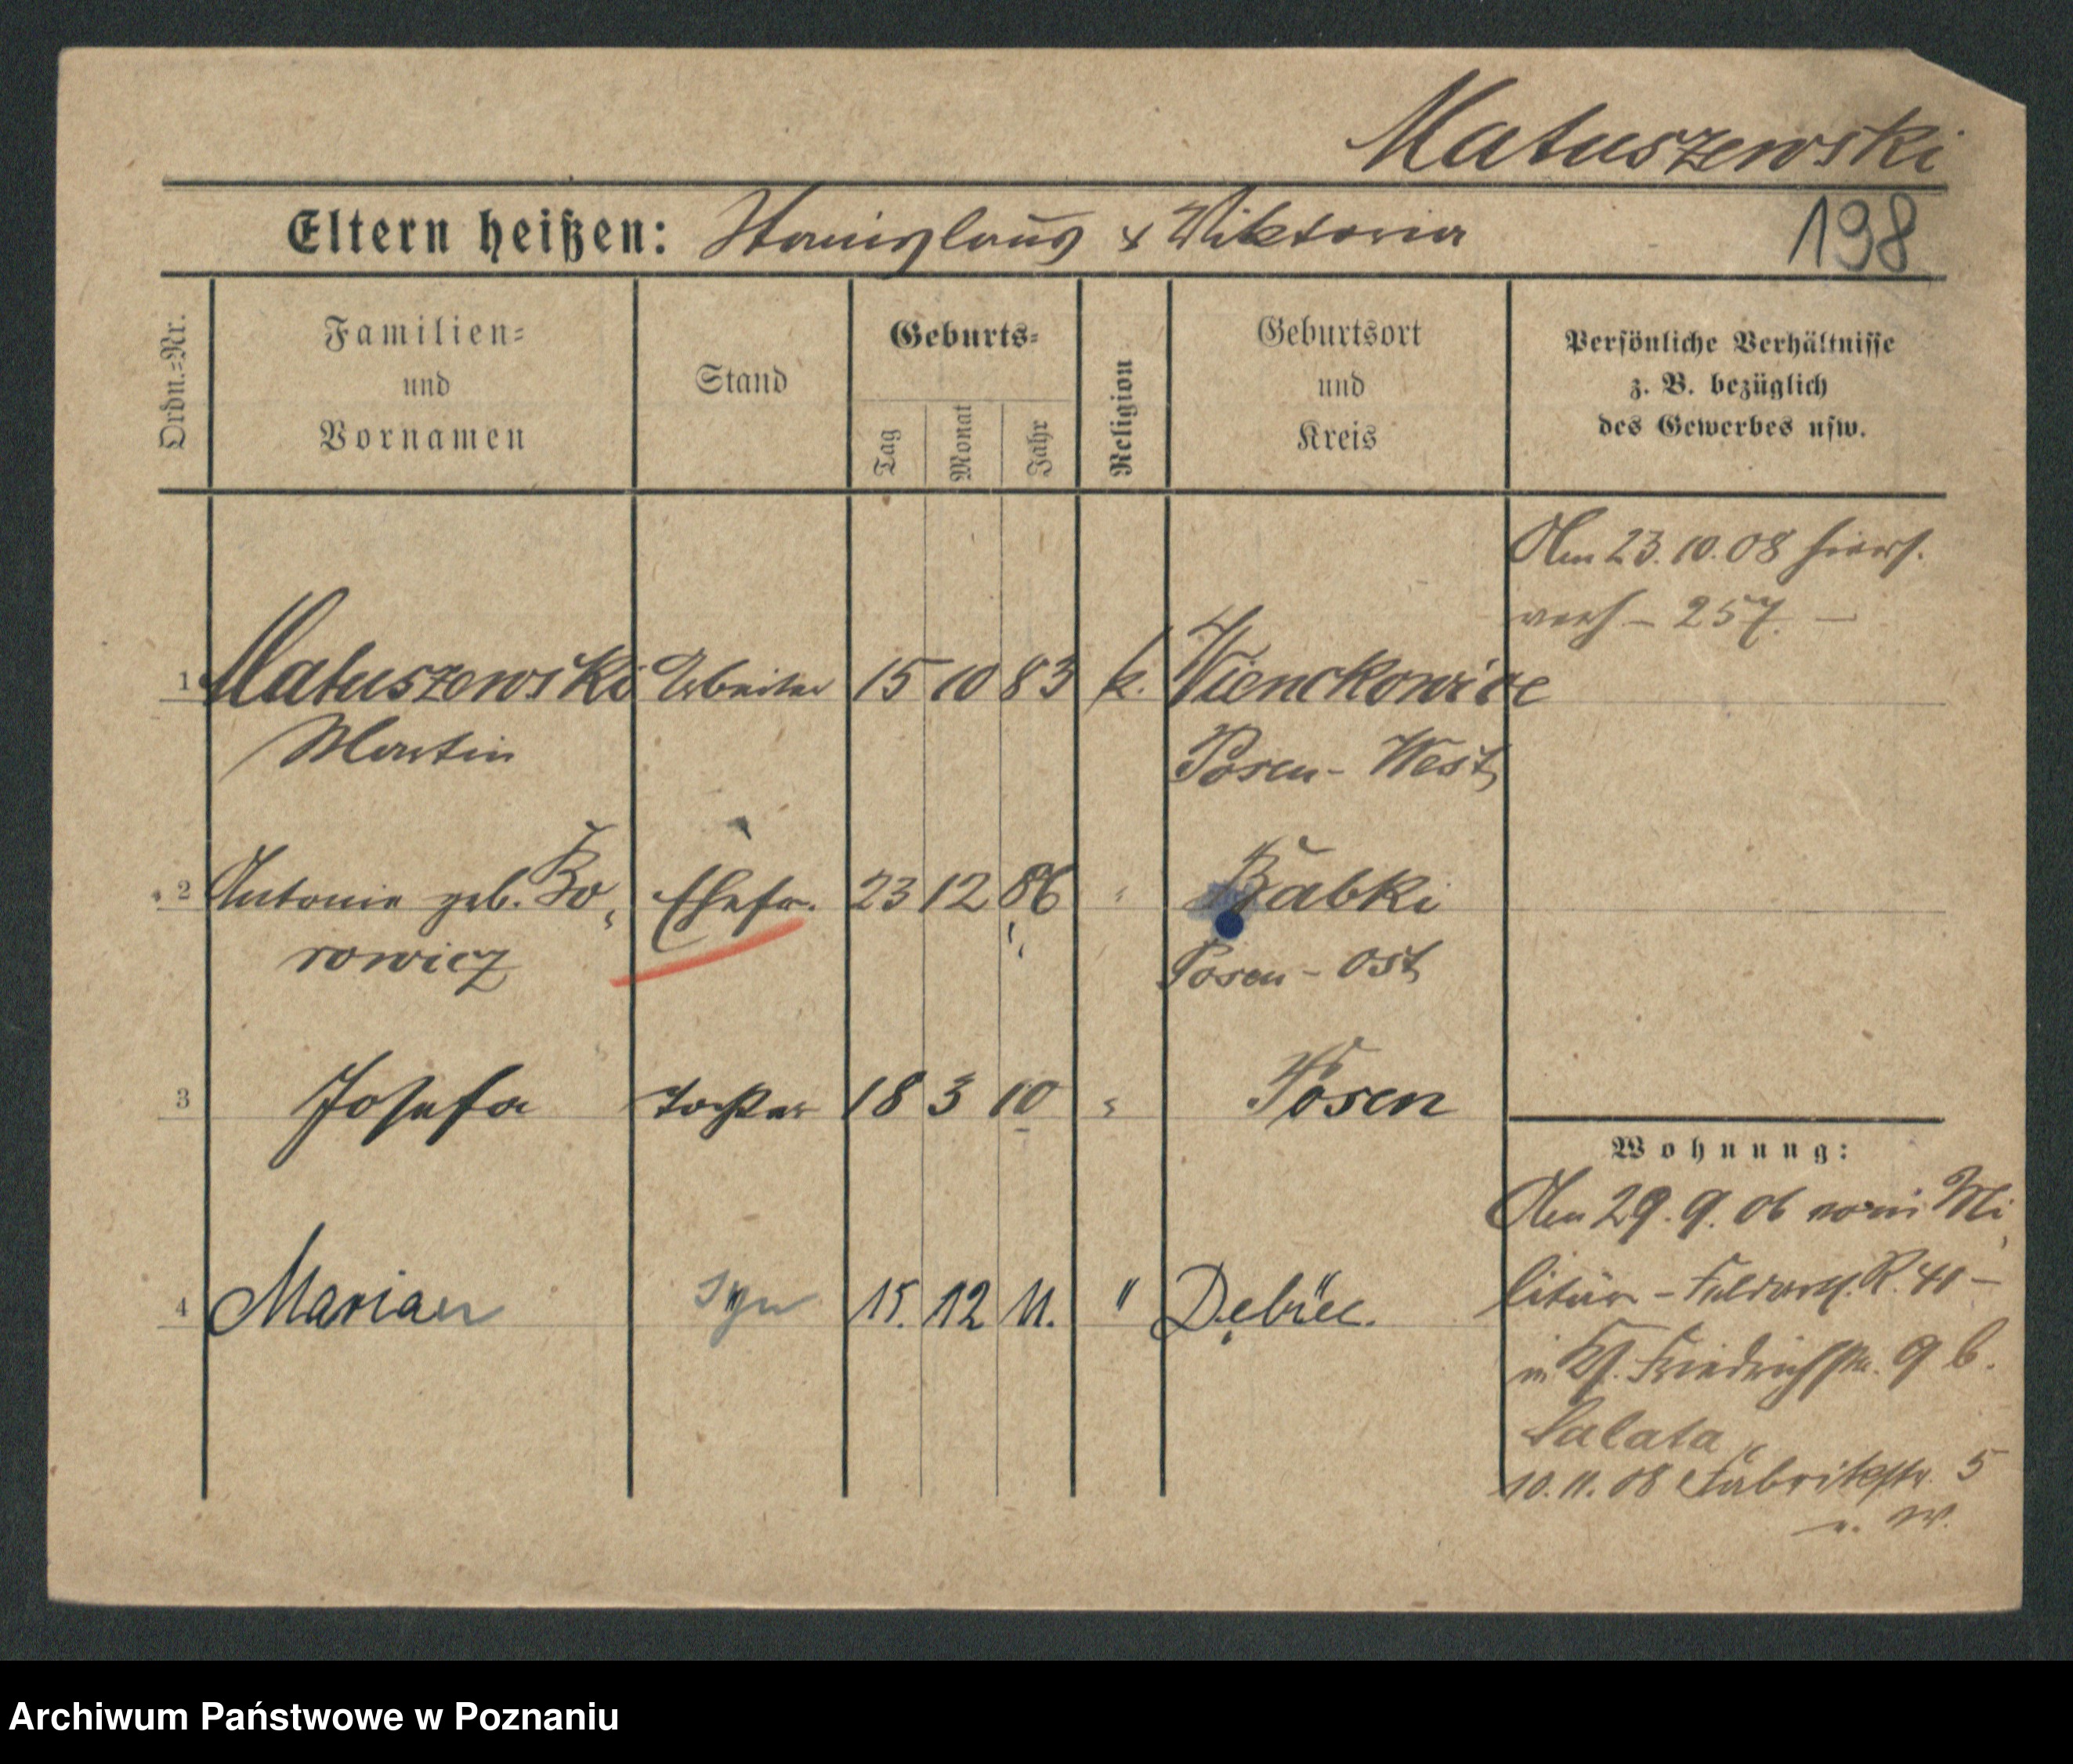 Matuszewski
Eltern heißen: Stanislaus & Viktoria
198
Ordn.-Nr.
Familien-
und
Vornamen
Stand
Geburts-
Tag
Monat
Jahr
Religion
Geburtsort
und
Kreis
Persönliche Verhältnisse
z. B. bezüglich
des Gewerbes usw.
Am 23.10.08 hiers.
verh – 257. –
1 Matuszewski Arbeiter 15 10 83 k. Wienckowice
Martin Posen-West
2 Antonie geb. Bo- Ehefr. 23 12 86 "  Babki
rowicz Posen-Ost
3 Josefa Tochter 18 3 10 " Posen
Wohnung:
Am 29.9.06 vom Mi-
litär – R. 
4 Marian syn 15. 12 11. " Dębiec.
in Friedrichstr. 9 b.
Salata
10.11.08 Fabrikstr. 5
Archiwum Państwowe w Poznaniu